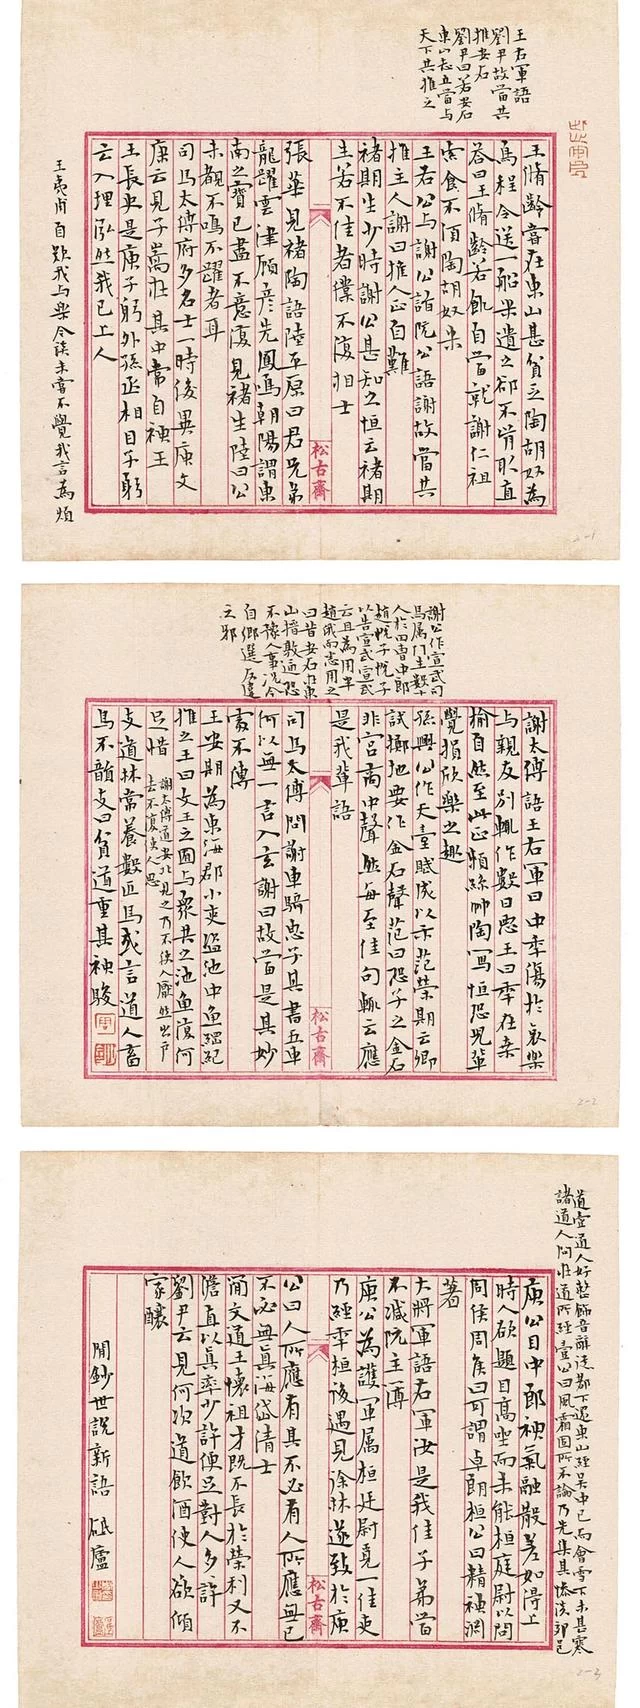 王右軍語
劉尹故當共
推安石
劉尹曰若安石
東山志立當與
天下共推之
王脩齡嘗在東山甚貧乏陶胡奴為
烏程令送一船米遺之卻不肯取直
答曰王脩齡若飢自當就謝仁祖
索食不須陶胡奴米
王右公與謝公詣阮公語謝故當共
推主人謝曰推人正自難
褚期生少時謝公甚知之恒云褚期
生若不佳者僕不復相士
松古齋
張華見褚陶語陸平原曰君兄弟
龍躍雲津顧彥先鳳鳴朝陽謂東
南之寶已盡不意復見褚生陸曰公
未覩不鳴不躍者耳
司馬太傅府多名士一時俊異庾文
康云見子嵩在其中常自神王
王長史是庾子躬外孫丞相目子躬
云入理泓然我已上人
王夷甫自歎我與樂令談未嘗不覺我言為煩
2-1
謝公作宣武司
馬属門生數十
人於田曹中郎
趙悅子悅子
以告宣武宣武
云且為用半
趙俄而悉用之
曰昔安石在東
山搢敦逼恐
不豫人事況今
自鄉選反違
之邪
謝太傅語王右軍曰中年傷於哀樂
与親友別輒作數日惡王曰年在桑
榆自然至此正賴絲竹陶寫恒恐兒輩
覺損欣樂之趣
孫興公作天臺賦成以示范榮期云卿
試擲地要作金石聲范曰恐子之金石
非宮商中聲然每至佳句輒云應
是我輩語
松古齋
司馬太傅問謝車騎惠子其書五車
何以無一言入玄謝曰故當是其妙
處不傳
王安期為東海郡小吏盜池中魚綱紀
推之王曰文王之囿与衆共之池魚復何
足惜
謝太傅道安北見之乃不使人厭然出戶
去不復使人思
支道林常養數匹馬或言道人畜
馬不韻支曰貧道重其神駿
2-2
道壹道人好整飾音辭從都下還東山經吳中已而會雪下未甚寒
諸道人問在道所經壹公曰風霜固所不論乃先集其慘澹郊邑
庾公目中郎神氣融散差如得上
時人欲題目高坐而未能桓庭尉以問
周侯周侯曰可謂卓朗桓公曰精神淵
著
大將軍語右軍汝是我佳子弟當
不減阮主簿
庾公為護軍属桓廷尉覓一佳吏
乃經年桓後遇見徐林遂致於庾
松古齋
公曰人所應有其不必有人所應無己
不必無真海岱清士
簡文道王懷祖才既不長於榮利又不
澹直以真率少許便足對人多許
劉尹云見何次道飲酒使人欲傾
家釀
閒鈔世說新語 砥廬
2-3